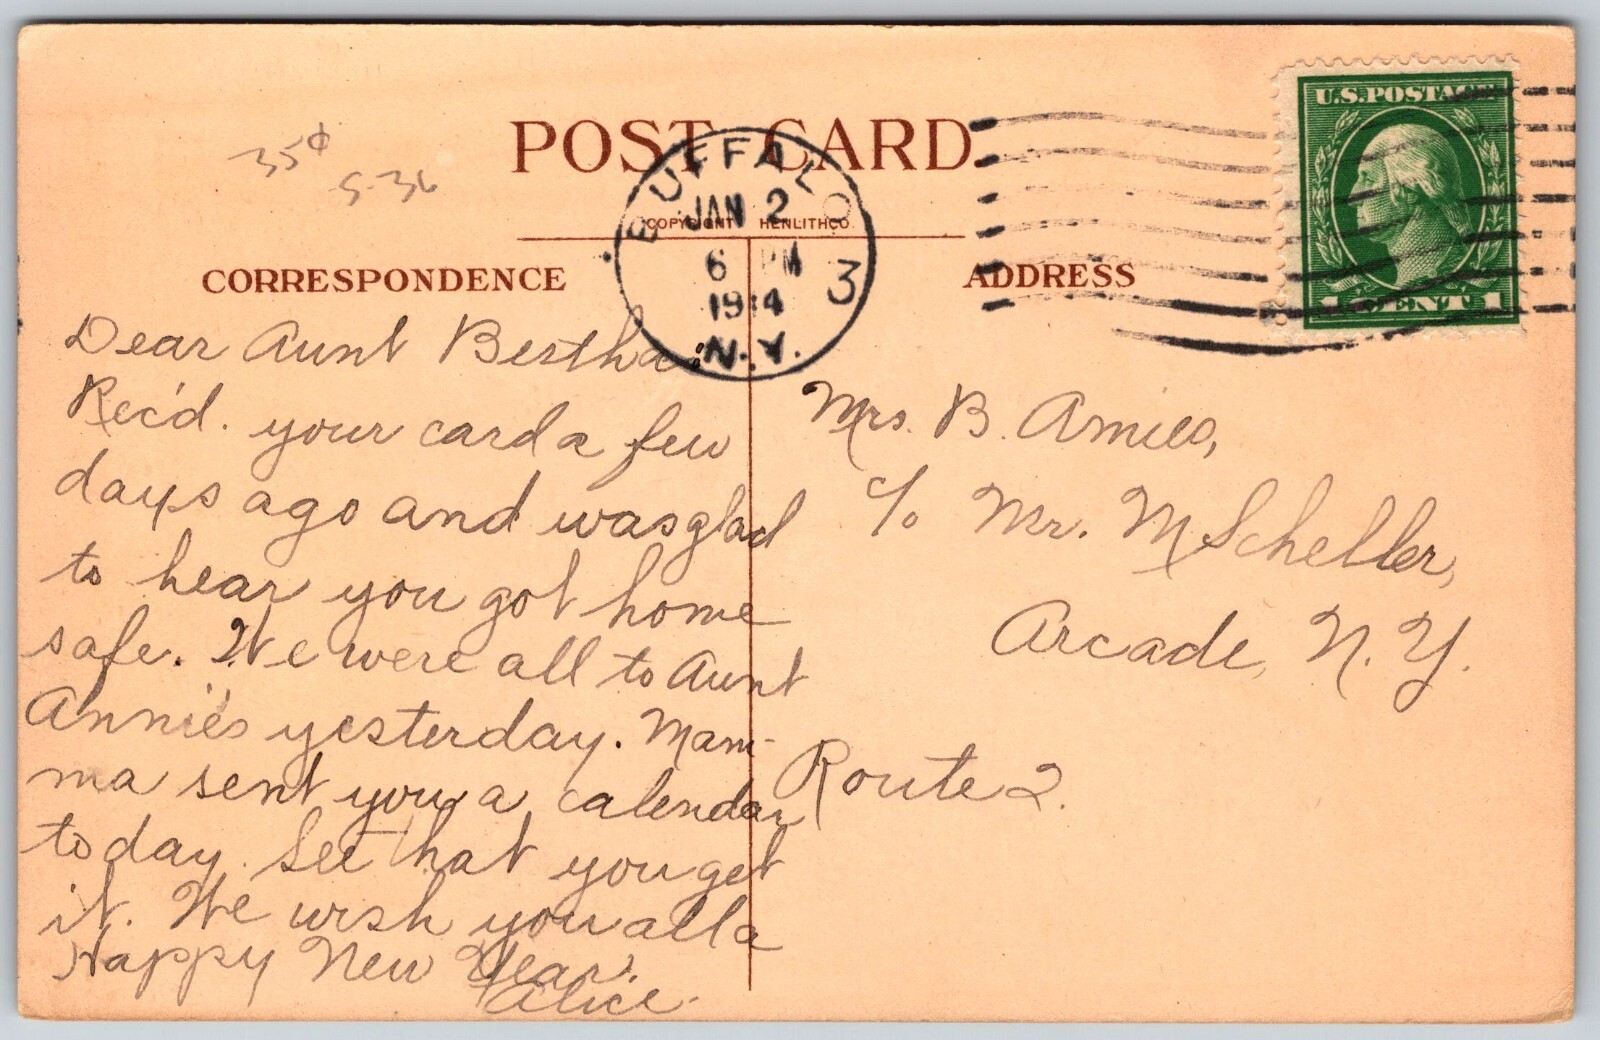 35¢
S-36
POST CARD
COPYRIGHT HENLITHCO.
BUFFALO
JAN 2
6 PM
1914
N.Y.
3
U.S.POSTAGE
1 CENT 1
CORRESPONDENCE
Dear Aunt Bertha:
Rec'd. your card a few
days ago and was glad
to hear you got home
safe. We were all to Aunt
Annie's yesterday. Mam-
ma sent you a calendar
today. See that you get
it. We wish you all a
Happy New Year.
Alice.
ADDRESS
Mrs. B. Amies,
c/o Mr. M Scheller,
Arcade, N.Y.
Route 2.